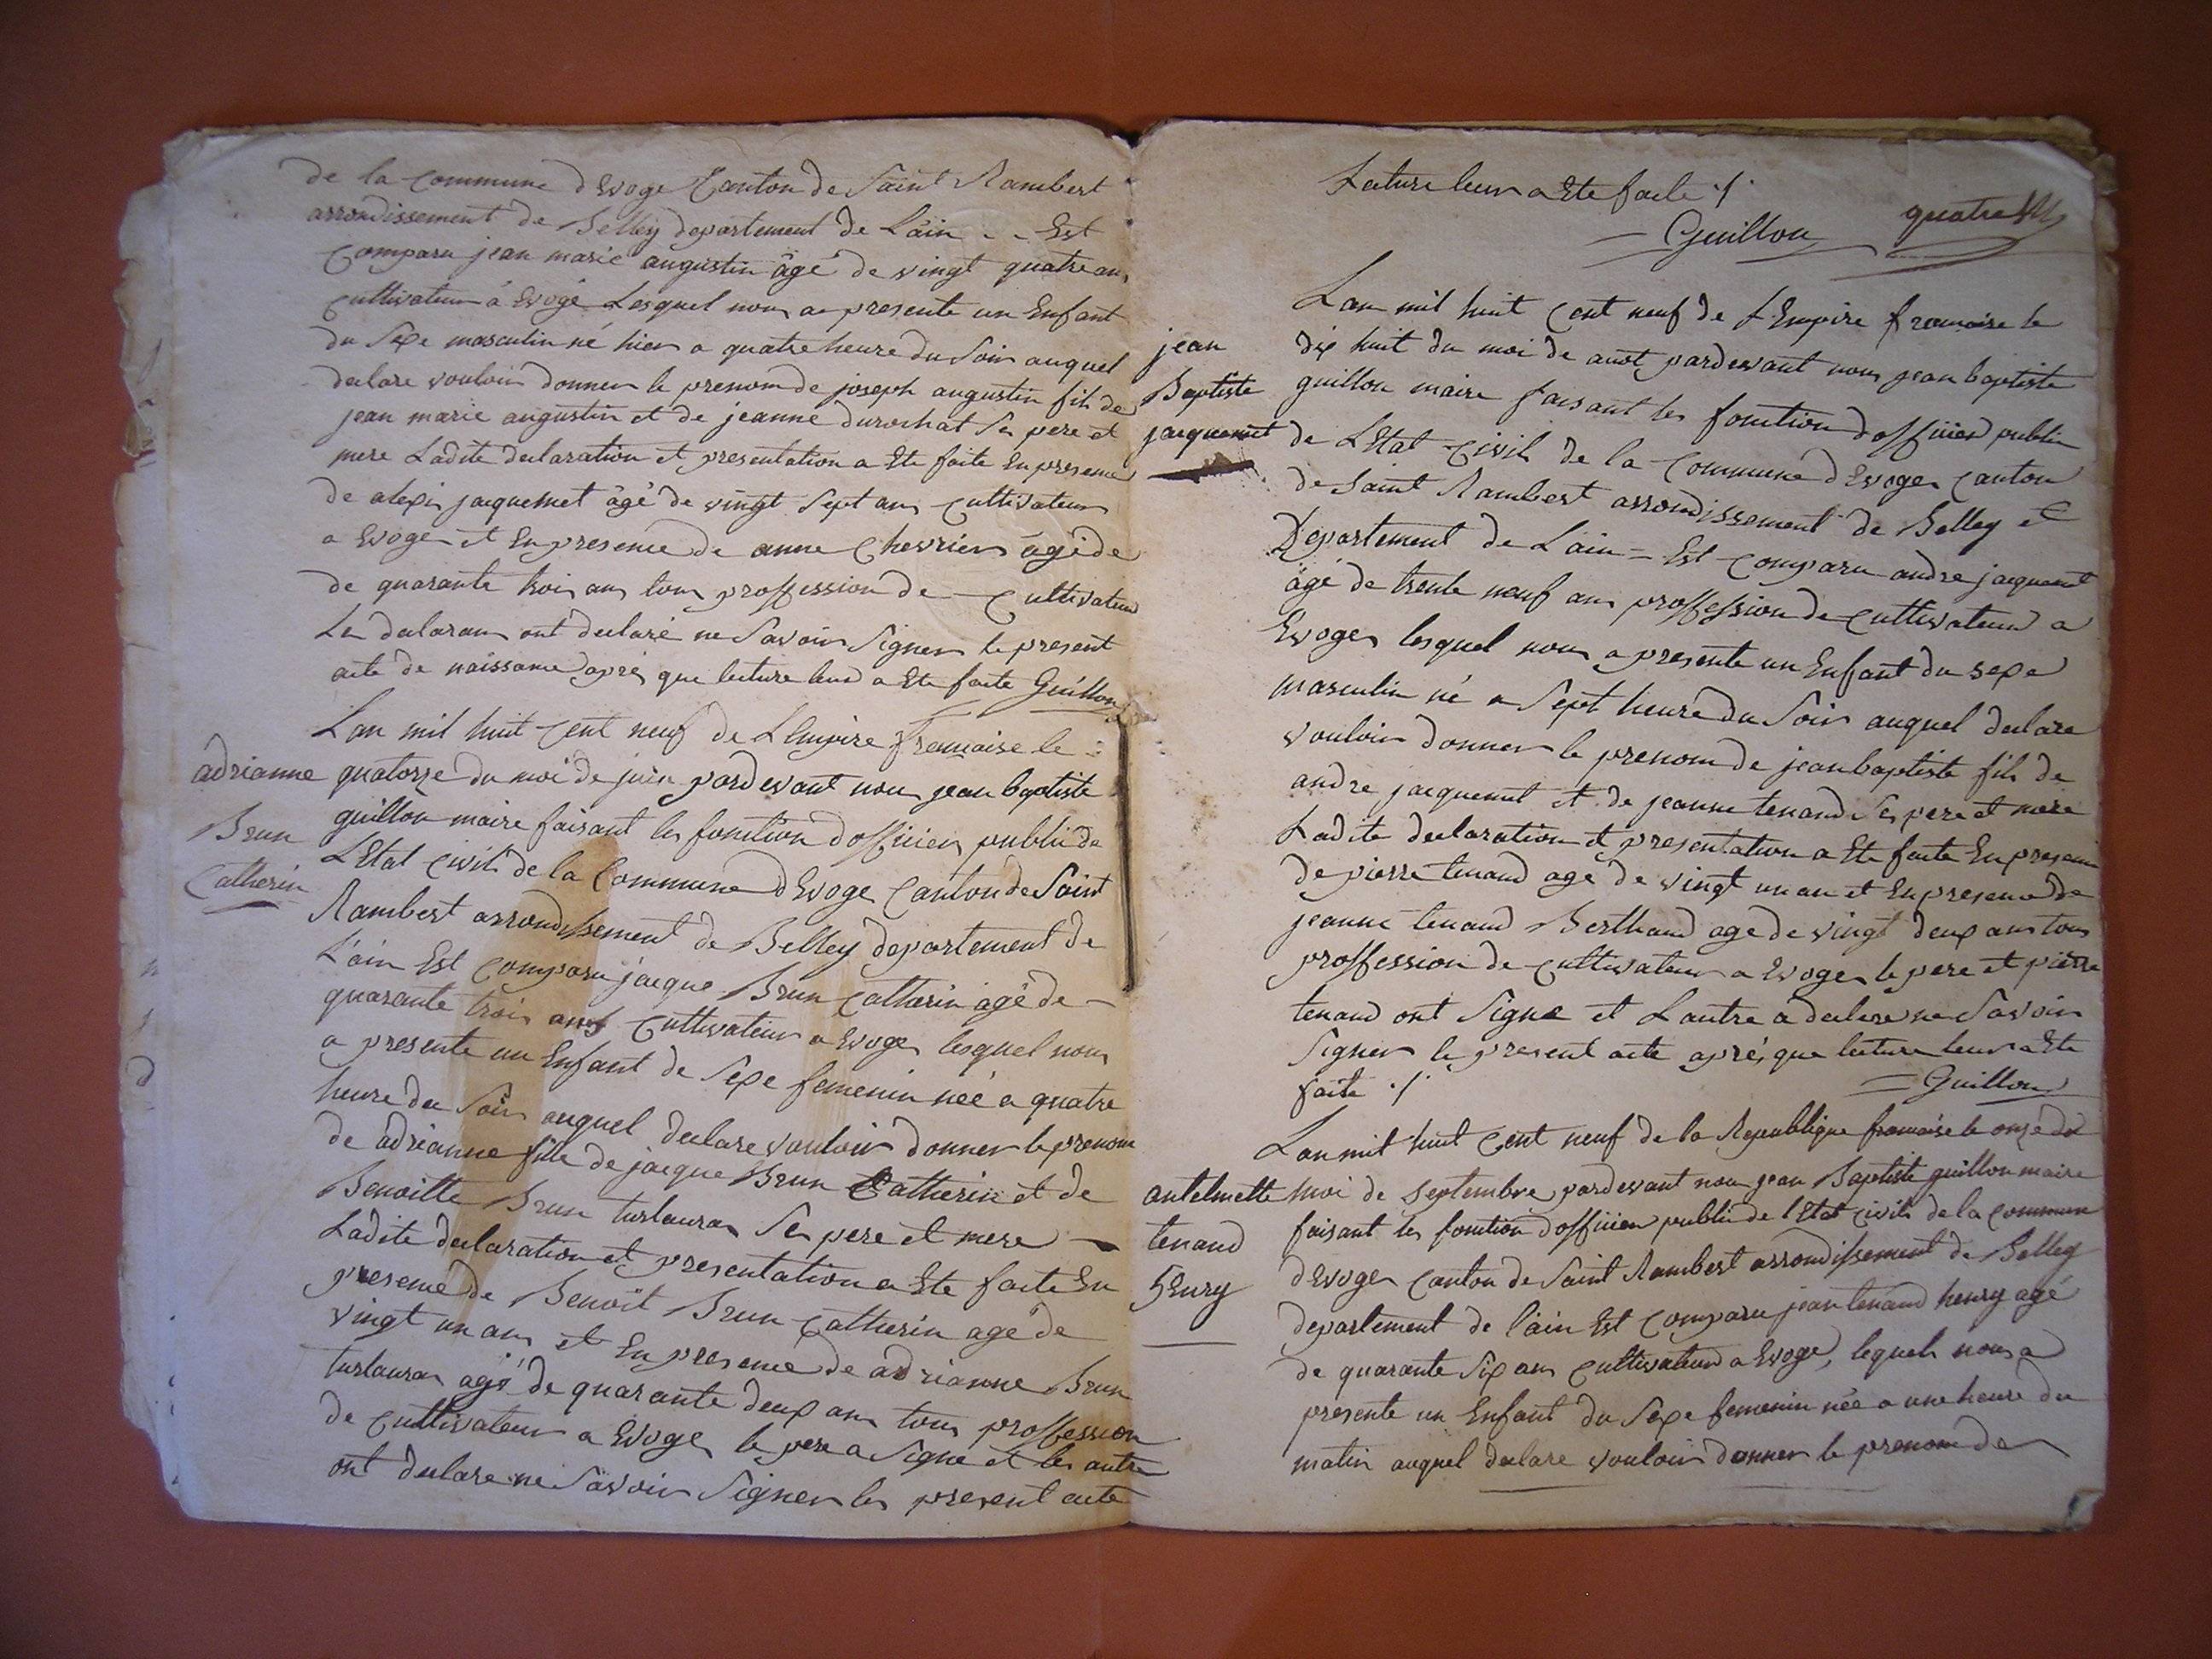 de la commune d'Evoge Canton de Saint Rambert
arrondissement de Belley departement de Lain - - Est
Comparu jean marie augustin âgé de vingt quatre ans
cultivateur à Evoge Lesquel nous a presente un Enfant
du Sexe masculin né hier a quatre heure du Soir auquel
declare vouloir donner le prenom de joseph augustin fils de
jean marie augustin et de jeanne durochat Ses pere et
mere Ladite declaration et presentation a Ete faite En presence
de alexis jaquemet âgé de vingt Sept ans cultivateur
a Evoges et En presence de anne Chevrier âgé de
de quarante trois ans tous proffession de cultivateur
Les declarans ont declaré ne Savoir Signer le present
acte de naissance aprés que lecture leur a Ete faite Guillon
L'an mil huit cent neuf de L'Empire francaise le
adrianne
Brun
Catherin
quatorze du moi de juin pardevant nous jean baptiste
guillon maire faisant les fonction d'officier public de
L'Etat civil de la Commune d'Evoge Canton de Saint
Rambert arrondissement de Belley departement de
L'ain Est Comparu jacque Brun Catherin âgé de -
quarante trois ans cultivateur a Evoges lesquel nous
a presente un Enfant de Sexe femenin née a quatre
heure du Soir auquel declare vouloir donner le prenom
de adrianne fille de jacque Brun Catherin et de
Benoitte Brun turlauran Ses pere et mere -
Ladite declaration et presentation a Ete faite En
presence de Benoit Brun Catherin age de
vingt un ans et En presence de adrianne Brun
turlauran agé de quarante deux ans tous proffession
de cultivateur a Evoges le pere a Signé et les autre
ont declare ne Savoir Signer les present acte
Lecture leur a Ete faite ./.
Guillon
quatre
jean
Baptiste
jacquemet
L'an mil huit Cent neuf de L'Empire francaise le
dix huit du moi de auot pardevant nous jean baptiste
guillon maire faisant les fonction d'officier public
de L'Etat Civil de la Commune d'Evoges Canton
de Saint Rambert arrondissement de Belley et
Departement de L'ain = Est Comparu andre jacquemet
âgé de trente neuf ans proffession de cultivateur a
Evoges lesquel nous a presente un Enfant du sexe
masculin né a Sept heure du Soir auquel declare
vouloir donner le prenom de jean baptiste fils de
andre jacquemet et de jeanne tenand Ses pere et mere
Ladite declaration et presentation a Ete faite En presence
de pierre tenand age de vingt un an et En presence de
jeanne tenand Berthaud age de vingt deux ans tous
proffession de cultivateur a Evoges le pere et pierre
tenand ont Signe et L'autre a declare ne Savoir
Signer le present acte aprés que lecture leur a Ete
faite ./.
Guillon
L'an mil huit Cent neuf de la Republique francaise le onze du
antelmette
tenand
henry
moi de Septembre pardevant nous jean Baptiste guillon maire
faisant les fonction d'officier public de l'Etat civil de la Commune
d'Evoges Canton de Saint Rambert arrondissement de Belley
departement de l'ain Est Comparu jean tenand henry agé
de quarante Six ans cultivateur a Evoge, lequel nous a
presente un Enfant du Sexe femenin née a une heure du
matin auquel declare vouloir donner le prenom de